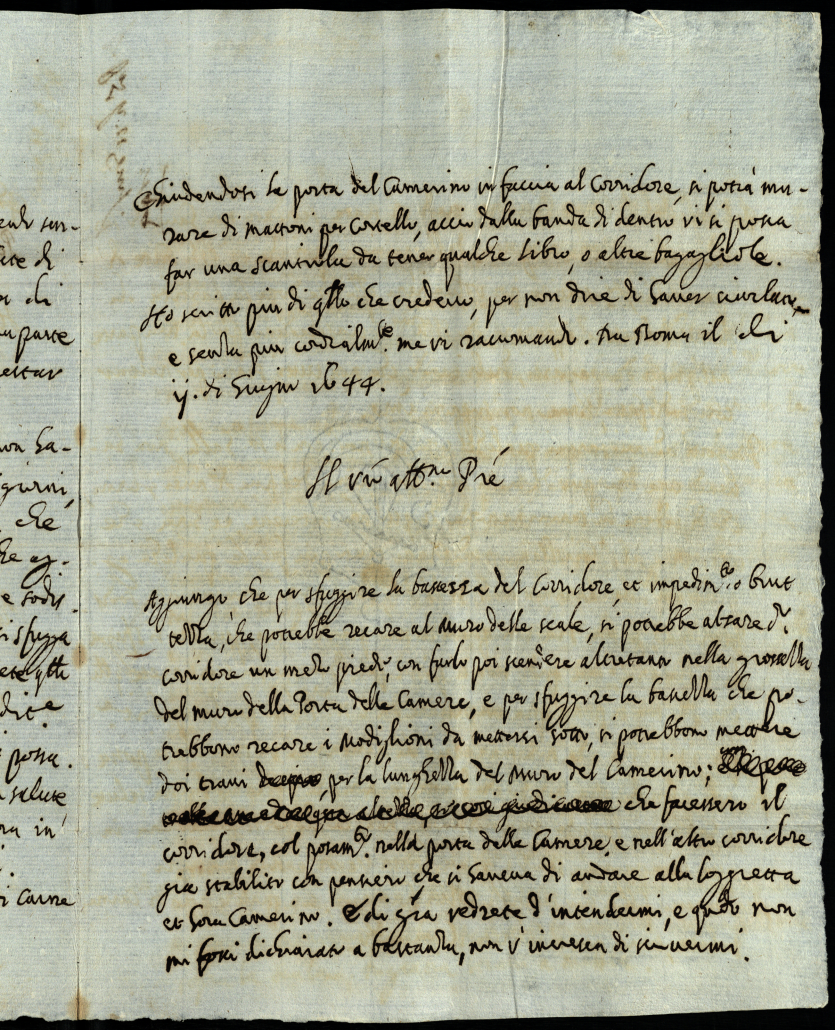 Chiudendosi la porta del Camerino in faccia al Corridore, si potrà mu-
rare di mattoni per Cortello, acciò dalla banda di dentro vi si possa
far una scantia da tener qualche libro, o altre bagagliole.
Ho scritto più di qllo che credevo, per non dire di haver
e senza più cordialmte. me vi racomando. Da Roma il di
ij. di Giugno 1644.
Il vro affmo Pre
Aggiungo, che per sfuggire la bassezza del Corridore, et impedimto. o brut
tezza, che potrebbe recare al Muro delle scale, si potrebbe alzare dto.
corridore un mezo piede, con farlo poi scendere altretanto nella grossezza
del muro della Porta delle Camere, e per sfuggire la bassezza che po-
trebbono recare i Modiglioni da mettersi sotto, si potrebbono mettere
doi travi per la lunghezza del Muro del Camerino; che facessero il
corridore, col posamto. nella porta delle Camere, e nell'altro corridore
già stabilito con pensiero che si haveva di andare alla loggietta
et hora Camerino. Di gra vedrete d'intendermi, e qudo non
mi fossi dichiarato a bastanza, non v'incresca di scrivermi.
eado
di
di
parte
estar
non ha-
giorni,
che
e sodis-
si sfugga
qlli
dice
possa.
salute
ora in